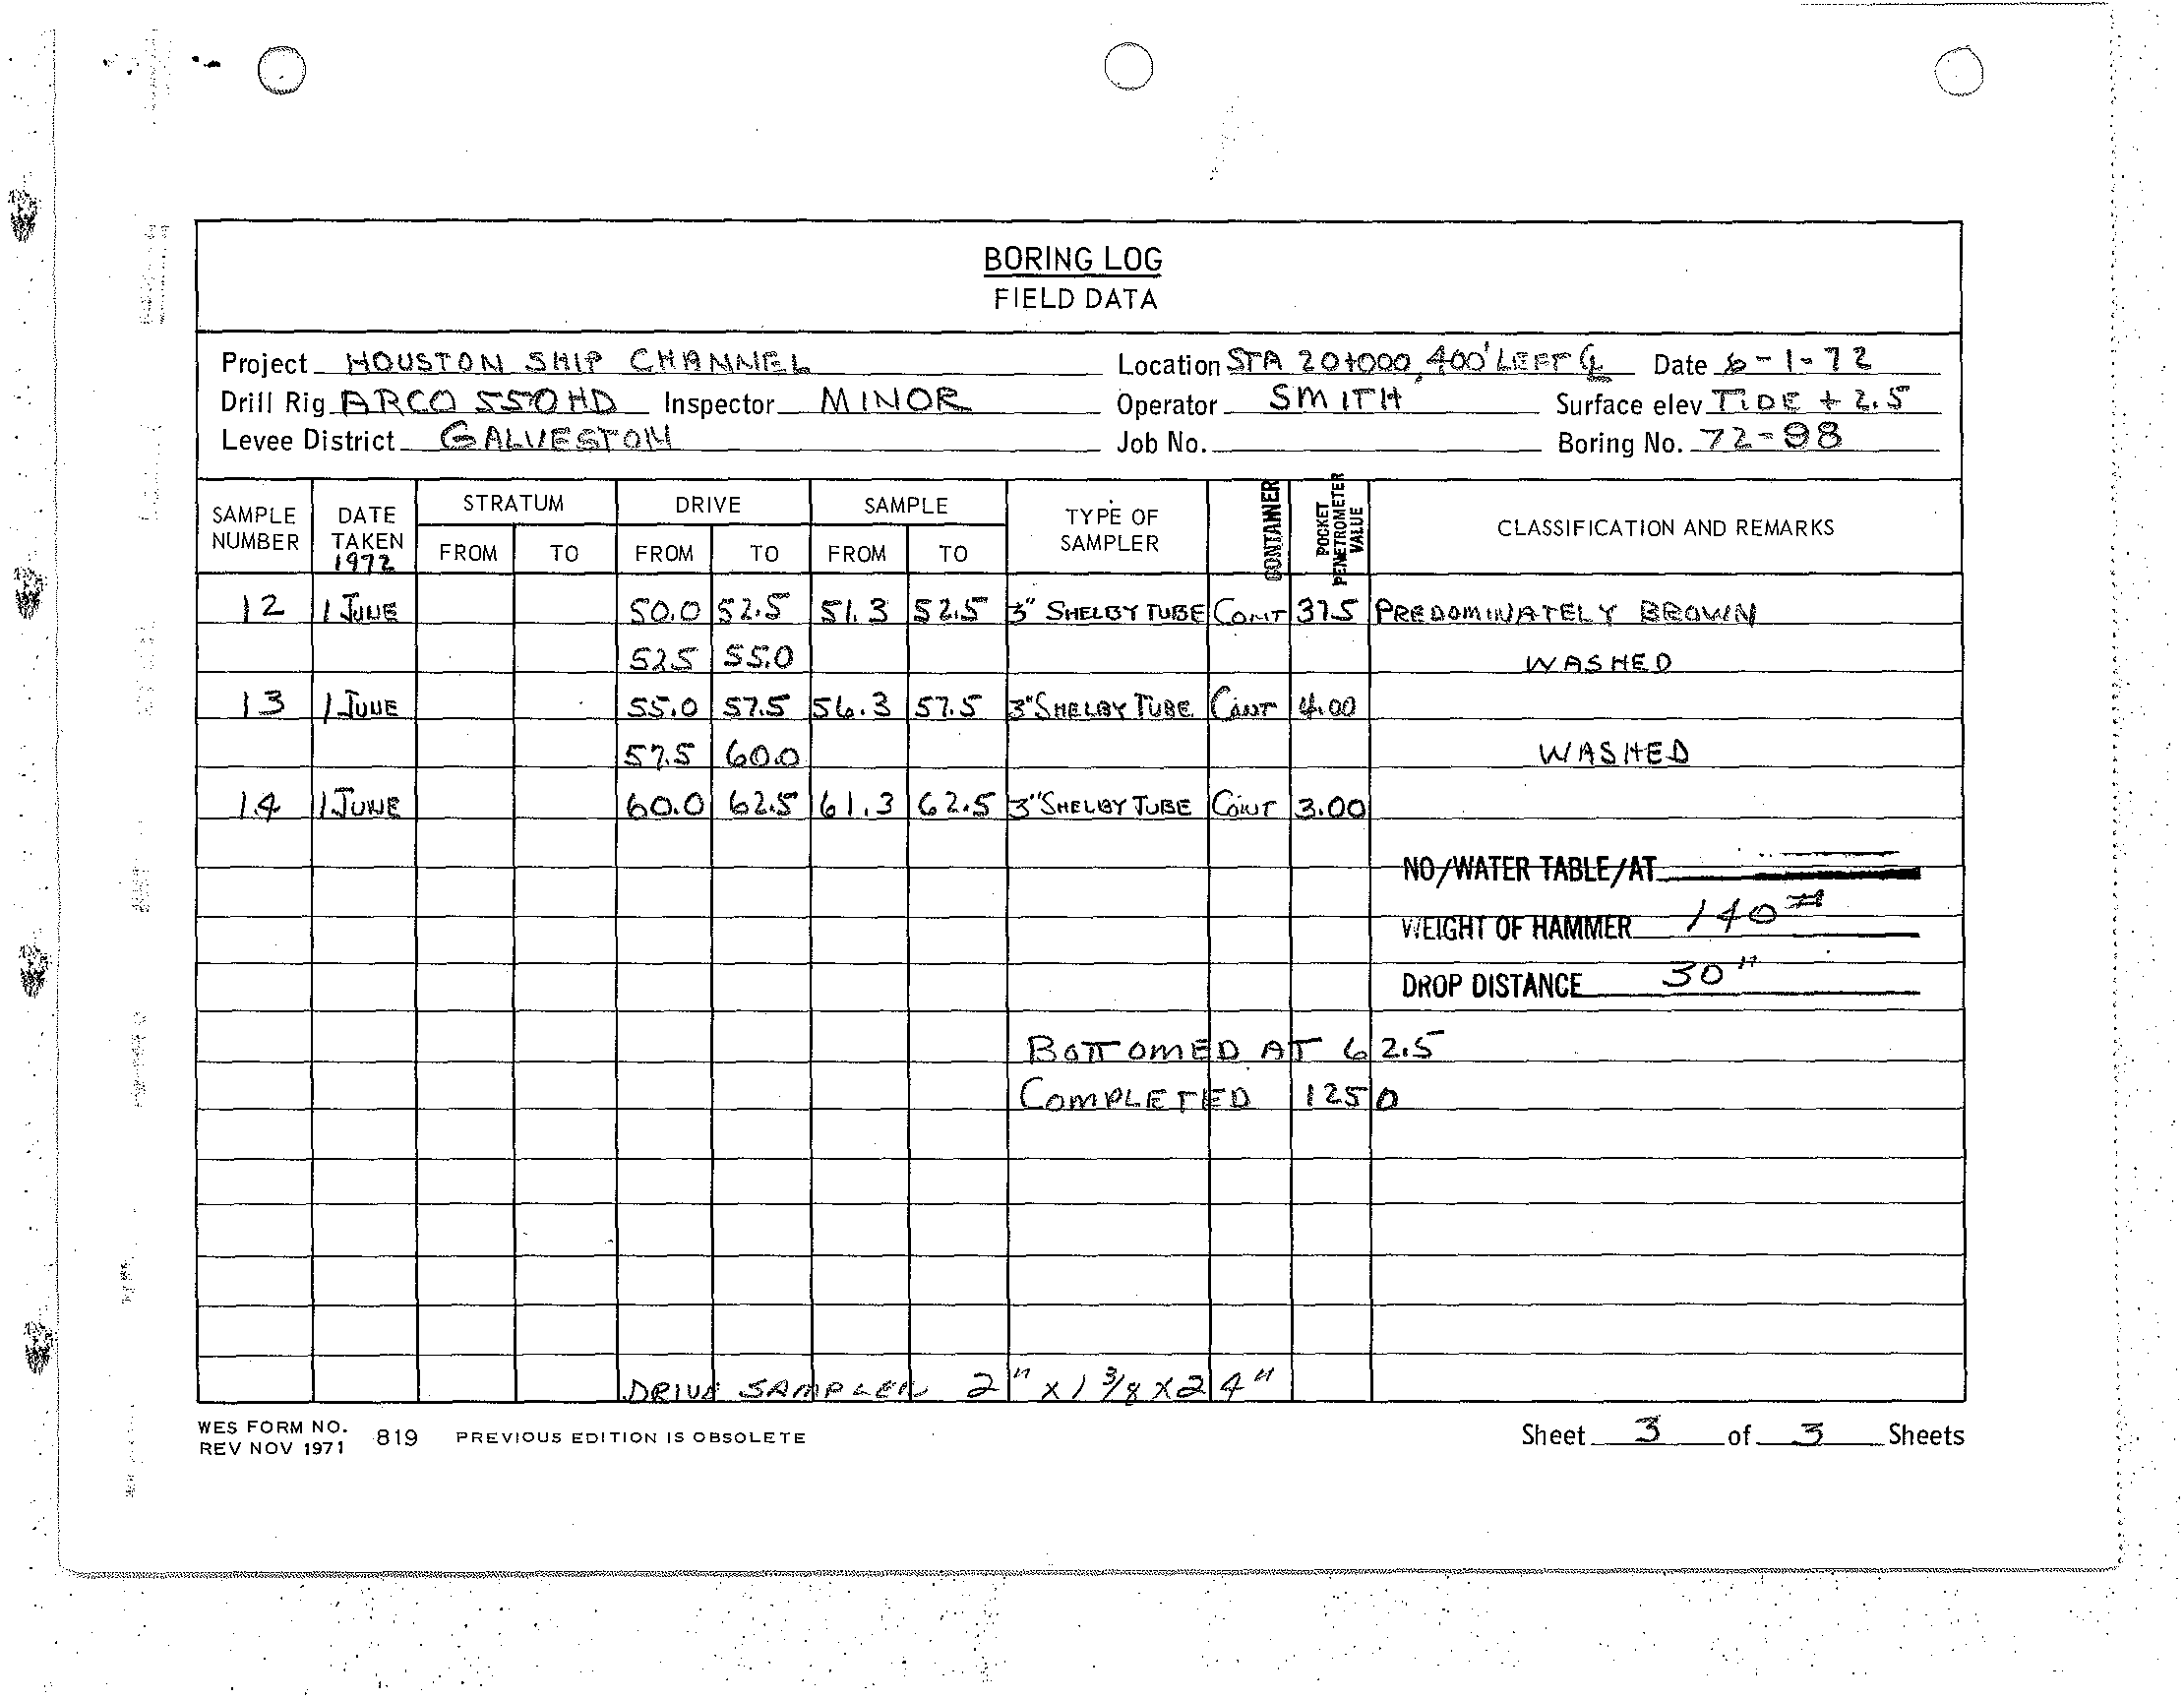 BORING LOG
FIELD DATA
Project HOUSTON SHIP CHANNEL Location STA 20+000, 400' LEFT ℄ Date 6-1-72
Drill Rig ARCO 550HD Inspector MINOR Operator SMITH Surface elev TIDE + 2.5
Levee District GALVESTON Job No. Boring No. 72-98
SAMPLE NUMBER DATE TAKEN 1972 STRATUM FROM TO DRIVE FROM TO SAMPLE FROM TO TYPE OF SAMPLER CONTAINER POCKET PENETROMETER VALUE CLASSIFICATION AND REMARKS
12 1 JUNE 50.0 52.5 51.3 52.5 3" SHELBY TUBE CONT 3.75 PREDOMINATELY BROWN
52.5 55.0 WASHED
13 1 JUNE 55.0 57.5 56.3 57.5 3" SHELBY TUBE CONT 4.00
57.5 60.0 WASHED
14 1 JUNE 60.0 62.5 61.3 62.5 3" SHELBY TUBE CONT 3.00
NO/WATER TABLE/AT
WEIGHT OF HAMMER 140#
DROP DISTANCE 30"
BOTTOMED AT 62.5
COMPLETED 1250
DRIVE SAMPLER 2" X 1 3/8 X 24"
WES FORM NO. 819 PREVIOUS EDITION IS OBSOLETE Sheet 3 of 3 Sheets
REV NOV 1971